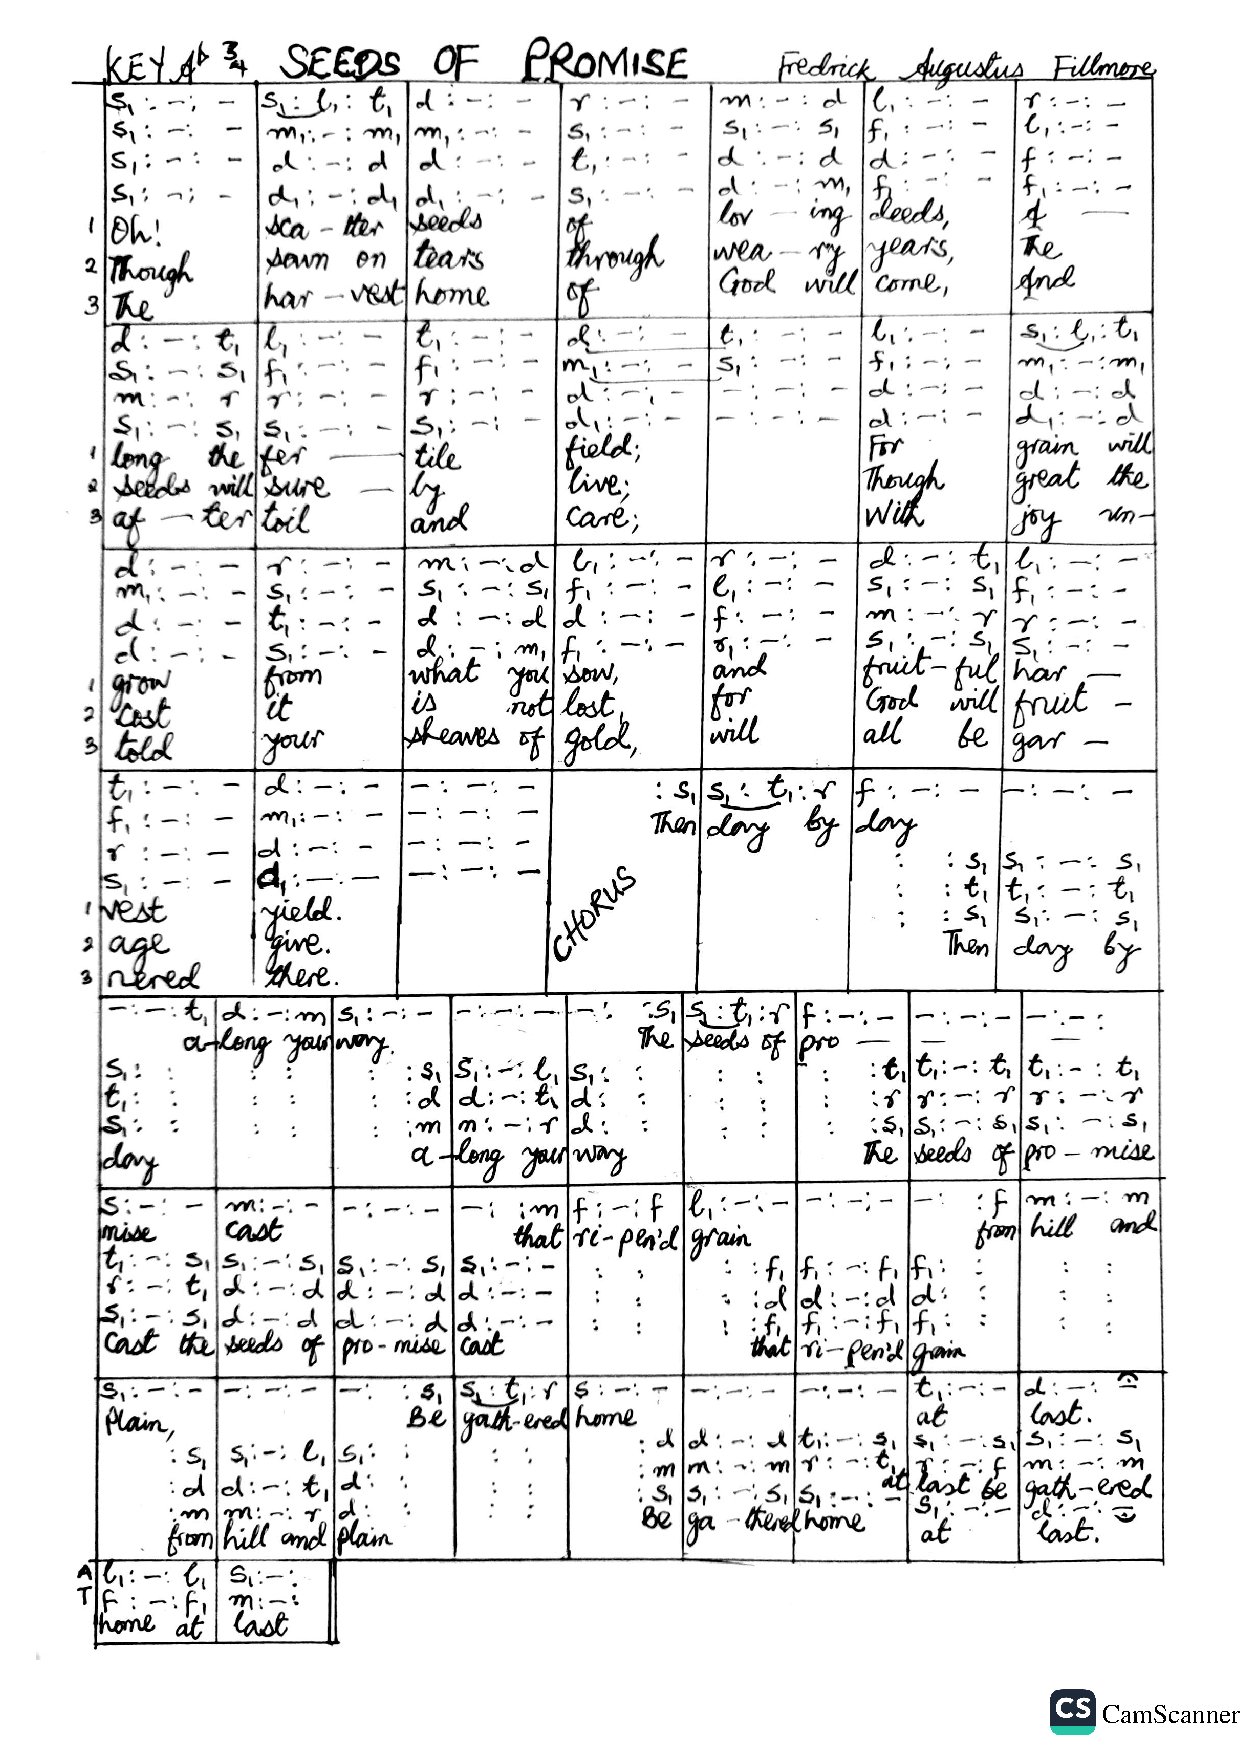 KEY A♭ 3/4 SEEDS OF PROMISE Fredrick Augustus Fillmore
s₁ : – : – | s₁ : l₁ : t₁ | d : – : – | r : – : – | m : – : d | l₁ : – : – | r : – : –
s₁ : – : – | m₁ : – : m₁ | m₁ : – : – | s₁ : – : – | s₁ : – : s₁ | f₁ : – : – | l₁ : – : –
s₁ : – : – | d : – : d | d : – : – | t₁ : – : – | d : – : d | d : – : – | f : – : –
s₁ : – : – | d₁ : – : d₁ | d₁ : – : – | s₁ : – : – | d : – : m₁ | f₁ : – : – | f₁ : – : –
1 Oh! sca – tter seeds of lov – ing deeds, A —
2 Though sown on tears through wea – ry years, The
3 The har – vest home of God will come, And
d : – : t₁ | l₁ : – : – | t₁ : – : – | d : – : – | t₁ : – : – | l₁ : – : – | s₁ : l₁ : t₁
s₁ : – : s₁ | f₁ : – : – | f₁ : – : – | m₁ : – : – | s₁ : – : – | f₁ : – : – | m₁ : – : m₁
m : – : r | r : – : – | r : – : – | d : – : – | – : – : – | d : – : – | d : – : d
s₁ : – : s₁ | s₁ : – : – | s₁ : – : – | d₁ : – : – | – : – : – | d : – : – | d₁ : – : d
1 long the fer — tile field; For grain will
2 seeds will sure — by live; Though great the
3 af – ter toil and care; With joy un –
d : – : – | r : – : – | m : – : d | l₁ : – : – | r : – : – | d : – : t₁ | l₁ : – : –
m₁ : – : – | s₁ : – : – | s₁ : – : s₁ | f₁ : – : – | l₁ : – : – | s₁ : – : s₁ | f₁ : – : –
d : – : – | t₁ : – : – | d : – : d | d : – : – | f : – : – | m : – : r | r : – : –
d : – : – | s₁ : – : – | d : – : m₁ | f₁ : – : – | r₁ : – : – | s₁ : – : s₁ | s₁ : – : –
1 grow from what you sow, and fruit – ful har —
2 cost it is not lost, for God will fruit –
3 told your sheaves of gold, will all be gar –
t₁ : – : – | d : – : – | – : – : – | : s₁ | s₁ : t₁ : r | f : – : – | – : – : –
f₁ : – : – | m₁ : – : – | – : – : – | Then day by day
r : – : – | d : – : – | – : – : – | : : s₁ | s₁ : – : s₁
s₁ : – : – | d₁ : – : – | – : – : – | : : t₁ | t₁ : – : t₁
CHORUS : : s₁ | s₁ : – : s₁
1 vest yield.
2 age give. Then day by
3 nered there.
– : – : t₁ | d : – : m | s₁ : – : – | – : – : – | – : : s₁ | s₁ : t₁ : r | f : – : – | – : – : – | – : – :
a–long your way. The seeds of pro — — —
s₁ : : | : : | : : s₁ | s₁ : – : l₁ | s₁ : : | : : | : : t₁ | t₁ : – : t₁ | t₁ : – : t₁
t₁ : : | : : | : : d | d : – : t₁ | d : : | : : | : : r | r : – : r | r : – : r
s₁ : : | : : | : : m | m : – : r | d : : | : : | : : s₁ | s₁ : – : s₁ | s₁ : – : s₁
day a–long your way The seeds of pro – mise
s : – : – | m : – : – | – : – : – | – : : m | f : – : f | l₁ : – : – | – : – : – | – : : f | m : – : m
mise cast that ri–pen'd grain from hill and
t₁ : – : s₁ | s₁ : – : s₁ | s₁ : – : s₁ | s₁ : – : – | : : | : : f₁ | f₁ : – : f₁ | f₁ : : | : :
r : – : t₁ | d : – : d | d : – : d | d : – : – | : : | : : d | d : – : d | d : : | : :
s₁ : – : s₁ | d : – : d | d : – : d | d : – : – | : : | : : f₁ | f₁ : – : f₁ | f₁ : : | : :
Cast the seeds of pro–mise cast that ri–pen'd grain
s₁ : – : – | – : – : – | – : : s₁ | s₁ : t₁ : r | s : – : – | – : – : – | – : – : – | t₁ : – : – | d : – : –
Plain, Be gath–ered home at last.
: s₁ | s₁ : – : l₁ | s₁ : : | : : | : d | d : – : d | t₁ : – : s₁ | s₁ : – : s₁ | s₁ : – : s₁
: d | d : – : t₁ | d : : | : : | : m | m : – : m | r : – : t₁ | r : – : f | m : – : m
at last be gath–ered
: m | m : – : r | d : : | : : | : s₁ | s₁ : – : s₁ | s₁ : – : – | s₁ : – : – | d : – : –
from hill and plain Be ga–thered home at last.
A l₁ : – : l₁ | s₁ : – :
T f : – : f₁ | m : – :
home at last
CS CamScanner